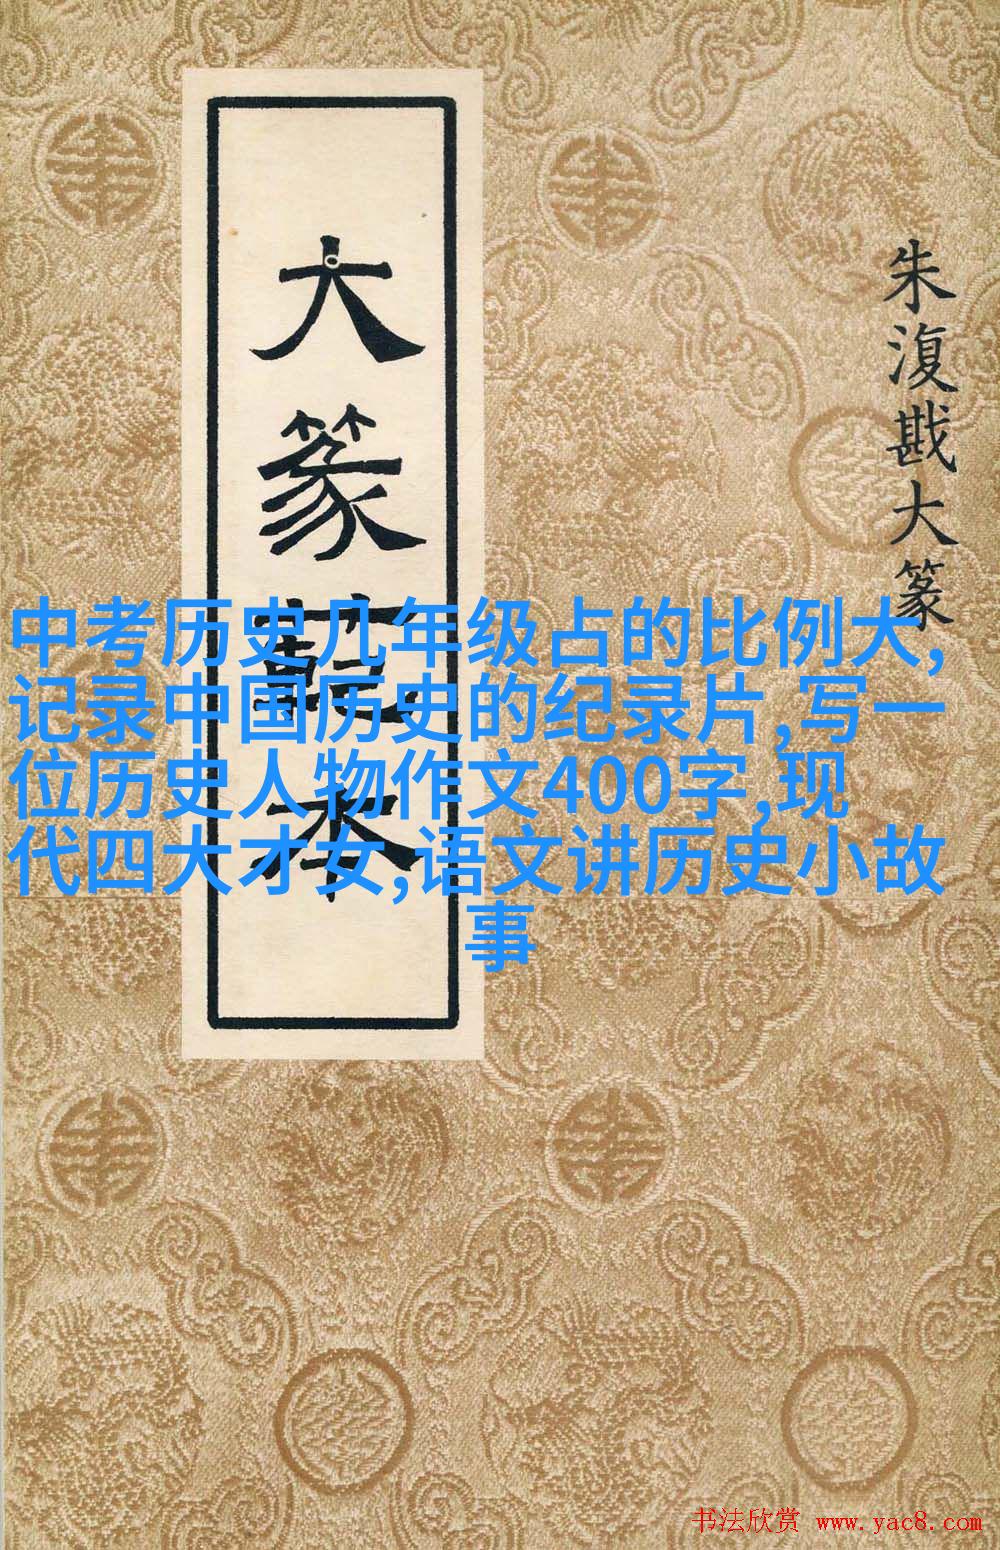 朱復戡大篆
大篆本
中考历史几年级占的比例大,
记录中国历史的纪录片,写一
位历史人物作文400字,现
代四大才女,语文讲历史小故
事
书法欣赏 www.yac8.com